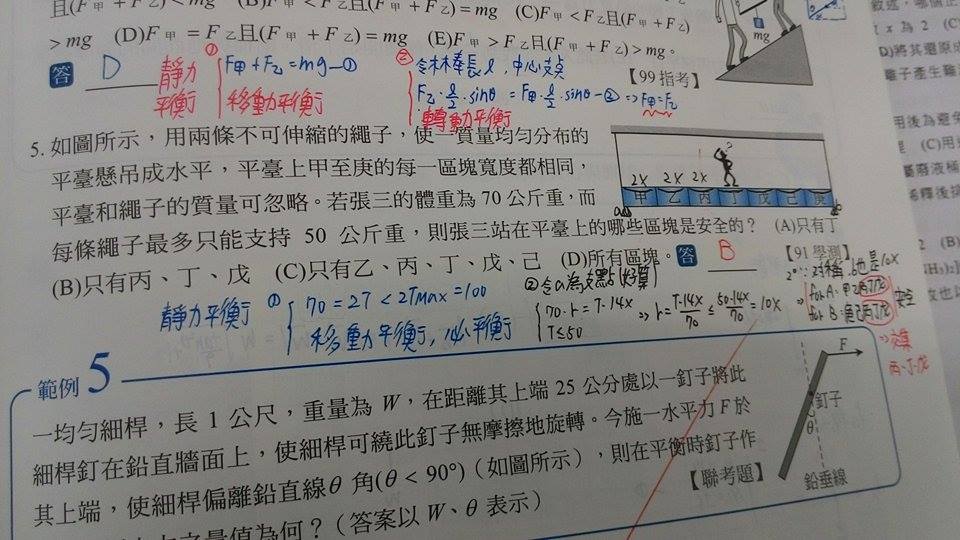 且(F甲 + F乙) < mg (B)F甲 = F乙且(F甲 + F乙) = mg (C)F甲 < F乙且(F甲 + F乙)
> mg (D)F甲 = F乙且(F甲 + F乙) = mg (E)F甲 > F乙且(F甲 + F乙) > mg。
答 D
【99 指考】
靜力平衡
① F甲+F乙=mg—①
移動平衡
② 令木棒長l,中心支點
F乙·l/2·sinθ = F甲·l/2·sinθ—② ⇒ F甲=F乙
轉動平衡
mg
5. 如圖所示,用兩條不可伸縮的繩子,使一質量均勻分布的
平臺懸吊成水平,平臺上甲至庚的每一區塊寬度都相同,
平臺和繩子的質量可忽略。若張三的體重為 70 公斤重,而
每條繩子最多只能支持 50 公斤重,則張三站在平臺上的哪些區塊是安全的? (A)只有丁
(B)只有丙、丁、戊 (C)只有乙、丙、丁、戊、己 (D)所有區塊。 答 B 【91 學測】
2x 2x 2x
甲 乙 丙 丁 戊 己 庚
靜力平衡
① 70 = 2T < 2Tmax = 100
移動平衡,必平衡
② 令a為支點(好算)
70·r = T·14x ⇒ r = T·14x/70 ≤ 50·14x/70 = 10x
T≤50
2°:對稱,b也是10x
⇒ for A:甲乙丙丁戊
for B:庚己丙丁戊
安全
⇒ 交集
丙、丁、戊
範例 5
一均勻細桿,長 1 公尺,重量為 W,在距離其上端 25 公分處以一釘子將此
細桿釘在鉛直牆面上,使細桿可繞此釘子無摩擦地旋轉。今施一水平力 F 於
其上端,使細桿偏離鉛直線 θ 角(θ < 90°)(如圖所示),則在平衡時釘子作
之量值為何?(答案以 W、θ 表示)
【聯考題】
F
釘子
θ
鉛垂線